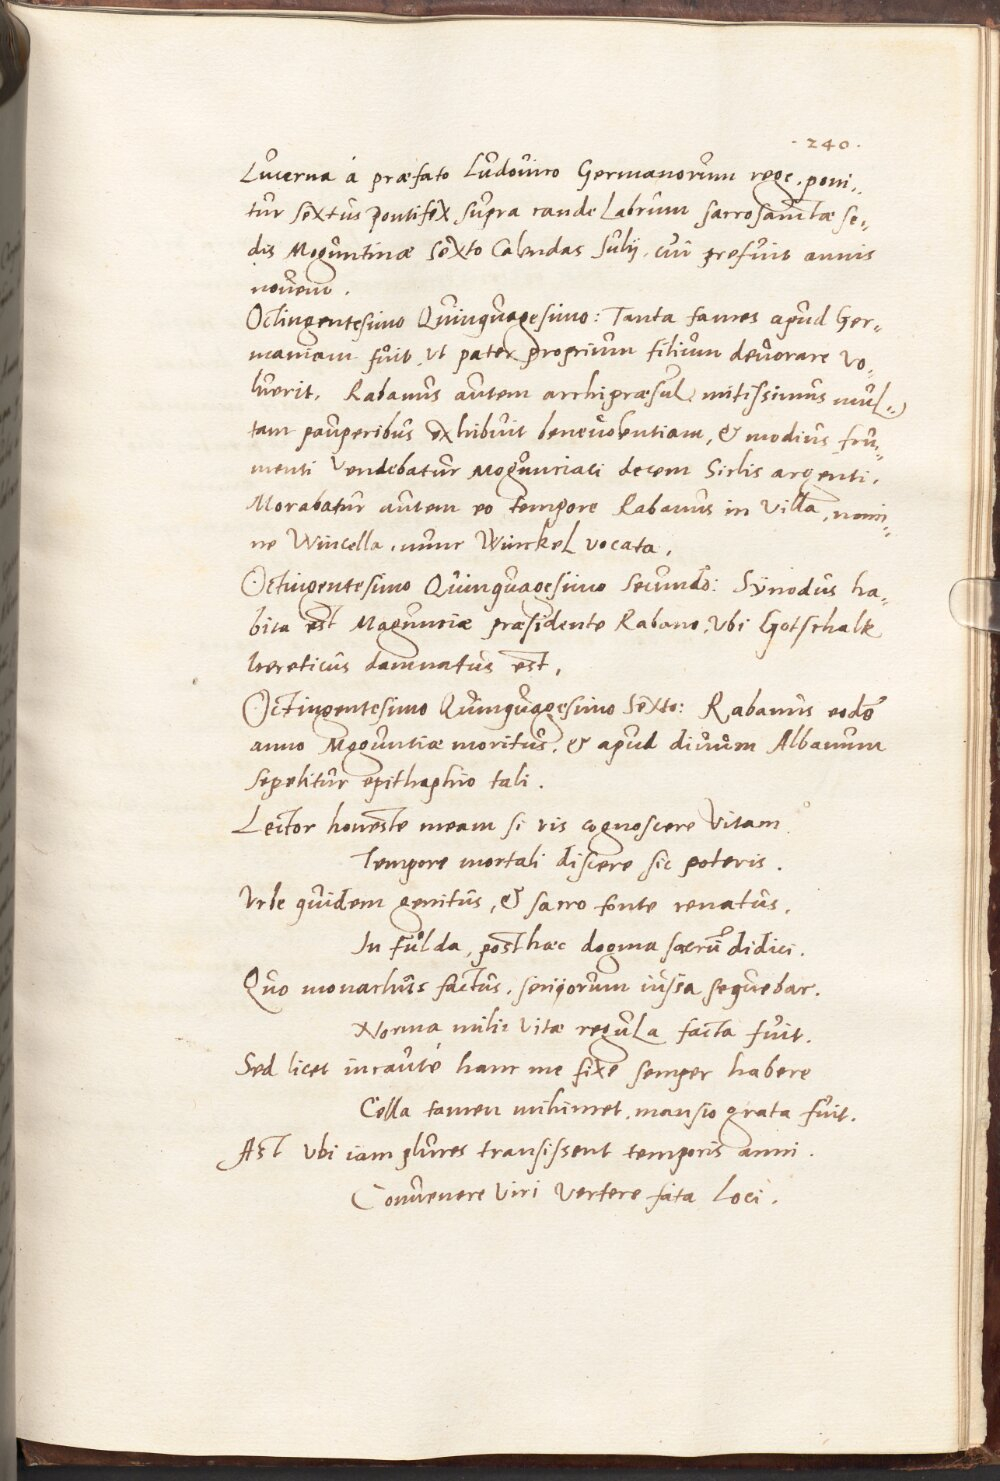 · 240 ·
Lucerna á præfato Ludovico Germanorum rege, poni-
tur sextus pontifex supra candelabrum sacrosanctæ se-
dis Moguntinæ sexto Calendas Julij, cui prefuit annis
novem.
Octingentesimo Quinquagesimo: Tanta fames apud Ger-
maniam fuit, ut pater proprium filium devorare vo-
luerit. Rabanus autem archipræsul mitissimus mul-
tam pauperibus exhibuit benevolentiam, & modius fru-
menti vendebatur Moguntiaci decem Siclis argenti.
Morabatur autem eo tempore Rabanus in Villa, nomi-
ne Wincella, nunc Winckel vocata.
Octingentesimo Quinquagesimo secundo: Synodus ha-
bita est Maguntiæ præsidente Rabano, Ubi Gotschalk
hereticus damnatus est.
Octingentesimo Quinquagesimo Sexto: Rabanus eodē
anno Moguntiæ moritur, & apud divum Albanum
sepelitur epithaphio tali.
Lector honeste meam si vis cognoscere Vitam
Tempore mortali discere sic poteris.
Urbe quidem genitus, & sacro fonte renatus,
In Fulda, post hæc dogma sacrū didici.
Quo monachus factus, senijorum iussa sequebar.
Norma mihi vitæ regula facta fuit.
Sed licet incauté hanc me fixe semper habere
Cella tamen mihimet, mansio grata fuit.
Ast Ubi iam plures transissent temporis anni.
Convenere Viri Vertere fata loci.